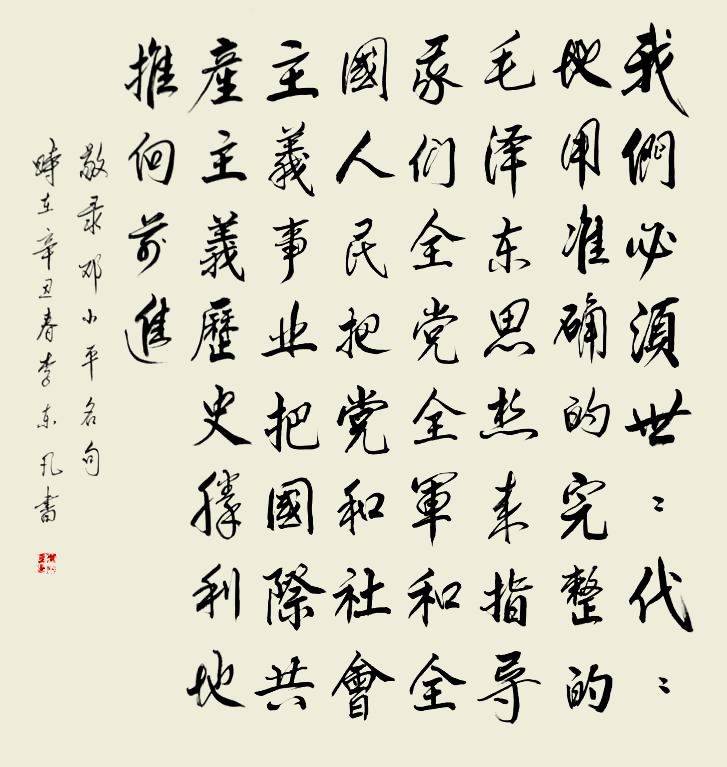 我們必須世〻代〻
地用准确的完整的
毛泽东思想来指导
我们全党全軍和全
國人民把党和社會
主義事业把國際共
産主義歷史勝利地
推向前進
敬录邓小平名句
時在辛丑春李东孔書